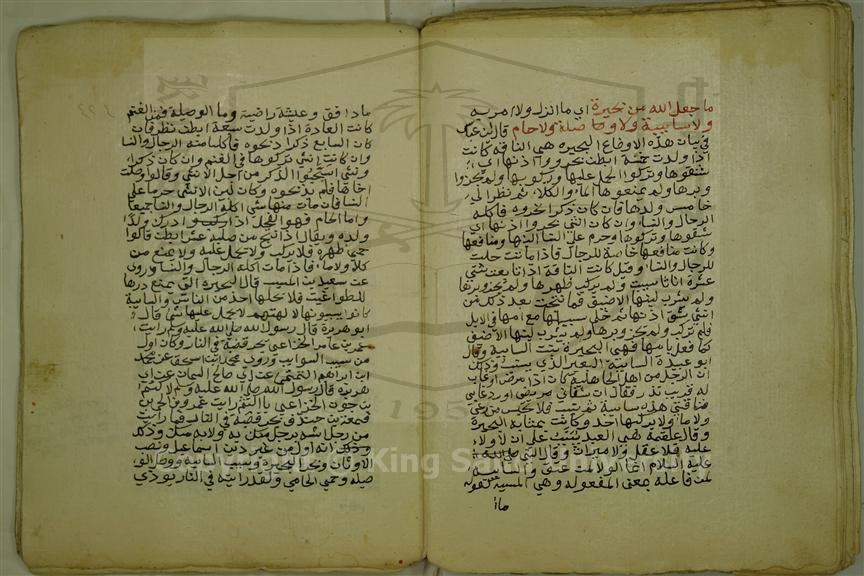 ما جعل الله من بحيرة اي ما انزل ولا امر به
ولا سايبة ولا وصيلة ولا حام قال ابن عباس
في بيان هذه الاوضاع البحيره هي الناقه كانت
اذا ولدت خمسة ابطن بحروا اذنها اي
شقوها وتركوا الحمل عليها وركوبها ولم يجزوا
وبرها ولم يمنعوها الماء والكلاء ثم نظرالى
خامس ولدها فان كان ذكرا نحروه فاكله
الرجال والنسا وان كان انثى بحروا اذنها اي
شقوها وتركوها وحرم على النسا لبنها ومنافعها
وكانت منافعها خاصة للرجال فاذا ماتت حلت
للرجال والنسا وقيل كانت الناقة اذا تابعت ثنتى
عشرة اناثا سيبت ولم يركب ظهرها ولم يجز وبرها
ولم يشرب لبنها الا ضيف فما نتجت بعد ذلك من
انثى شق اذنها ثم خلى سبيلها مع امها في الابل
فلم تركب ولم يجز وبرها ولم يشرب لبنها الا ضيف
كما فعل بامها فهي البحيرة بنت السايبة وقال
ابو عبيدة السايبة البعير الذي يسيب وذلك
ان الرجل من اهل الجاهلية كان اذا مرض او غاب
له قريب نذر فقال ان شفاني
ناقتي هذه سايبة ثم يسيب فلا تحبس عن رعي
ولا ماء ولا يركبها احد وكانت بمثابة البحيرة
وقال علقمة هي العبد يسيب على ان لا ولاء
عليه فلا عقل ولا ميراث وقال النبي
عليه السلام انما الولاء لمن اعتق والسايبة
فاعلة بمعنى المفعوله وهي المسيبة كقوله
ماء
ماء دافق وعيشة راضية وما الوصيلة فمن الغنم
كانت العادة اذا ولدت سبعة ابطن نظر فان
كان السابع ذكرا ذبحوه فاكل منه الرجال والنسا
وان كانت انثى تركوها في الغنم وان كان ذكرا
وانثى استحيوا الذكر من اجل الانثى وقالوا وصلت
اخاها فلم يذبحوه وكان لبن الانثى حراما على
النسا فان مات منها شي اكله الرجال والنسا جميعا
واما الحام فهو الفحل اذا ركب ولد
ولده ويقال اذا نتج من صلبه عشر ابطن قالوا
حمي ظهره فلا يركب ولا يحمل عليه ولا يمنع من
كلأ ولا ماء فاذا مات اكله الرجال والنسا وروي
عن سعيد بن المسيب قال البحيرة التي يمنع درها
للطواغيت فلا يحلبها احد من الناس والسايبة
كانوا يسيبونها لالهتهم لا يحمل عليها شي قال
ابو هريرة قال رسول الله صلى الله عليه وسلم رايت
عمرو بن عامر الخزاعي يجر قصبه في النار وكان اول
من سيب السوايب وروي محمد بن اسحق عن محمد
ابن ابراهيم التيمي عن ابي صالح السمان عن ابي
هريرة قال رسول الله صلى الله عليه وسلم لاكثم
بن جون الخزاعي يا اكثم رايت عمرو بن لحي بن
قمعة بن خندف يجر قصبه في النار فما رايت
من رجل اشبه برجل منك به ولا به منك وذلك
انه اول من غير دين اسماعيل ونصب
الاوثان وبحر البحيرة وسيب السايبة ووصل الو
صيلة وحمى الحامي ولقد رايته في النار يوذي